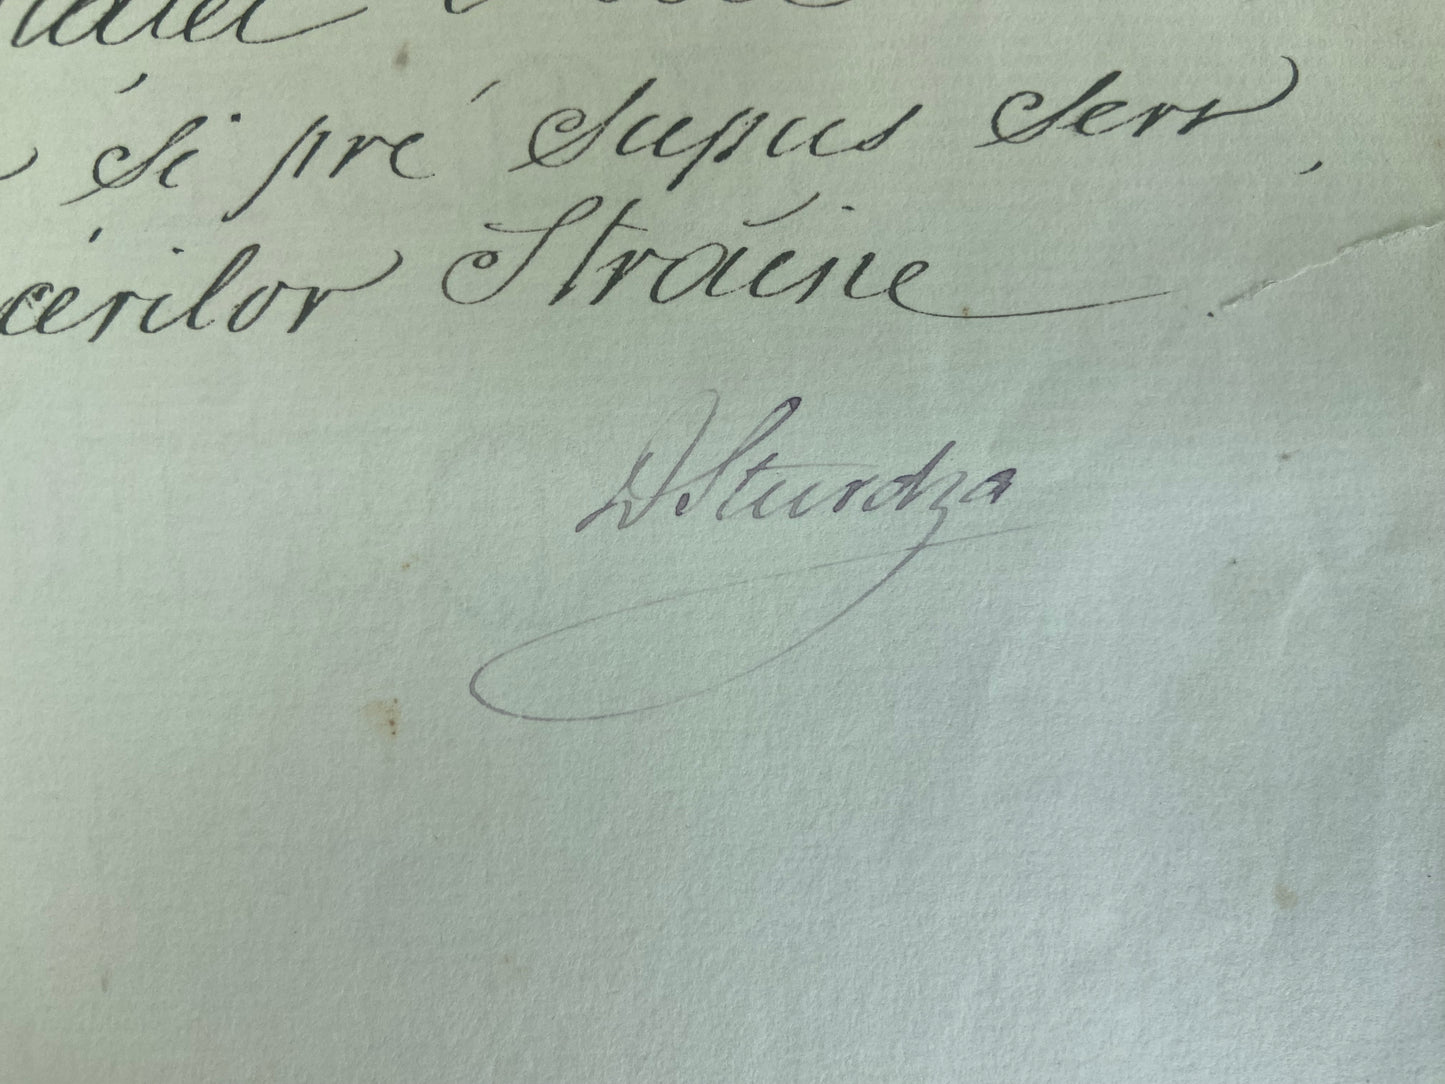 și pré supus Serv,
cerilor Străine.
DSturdza